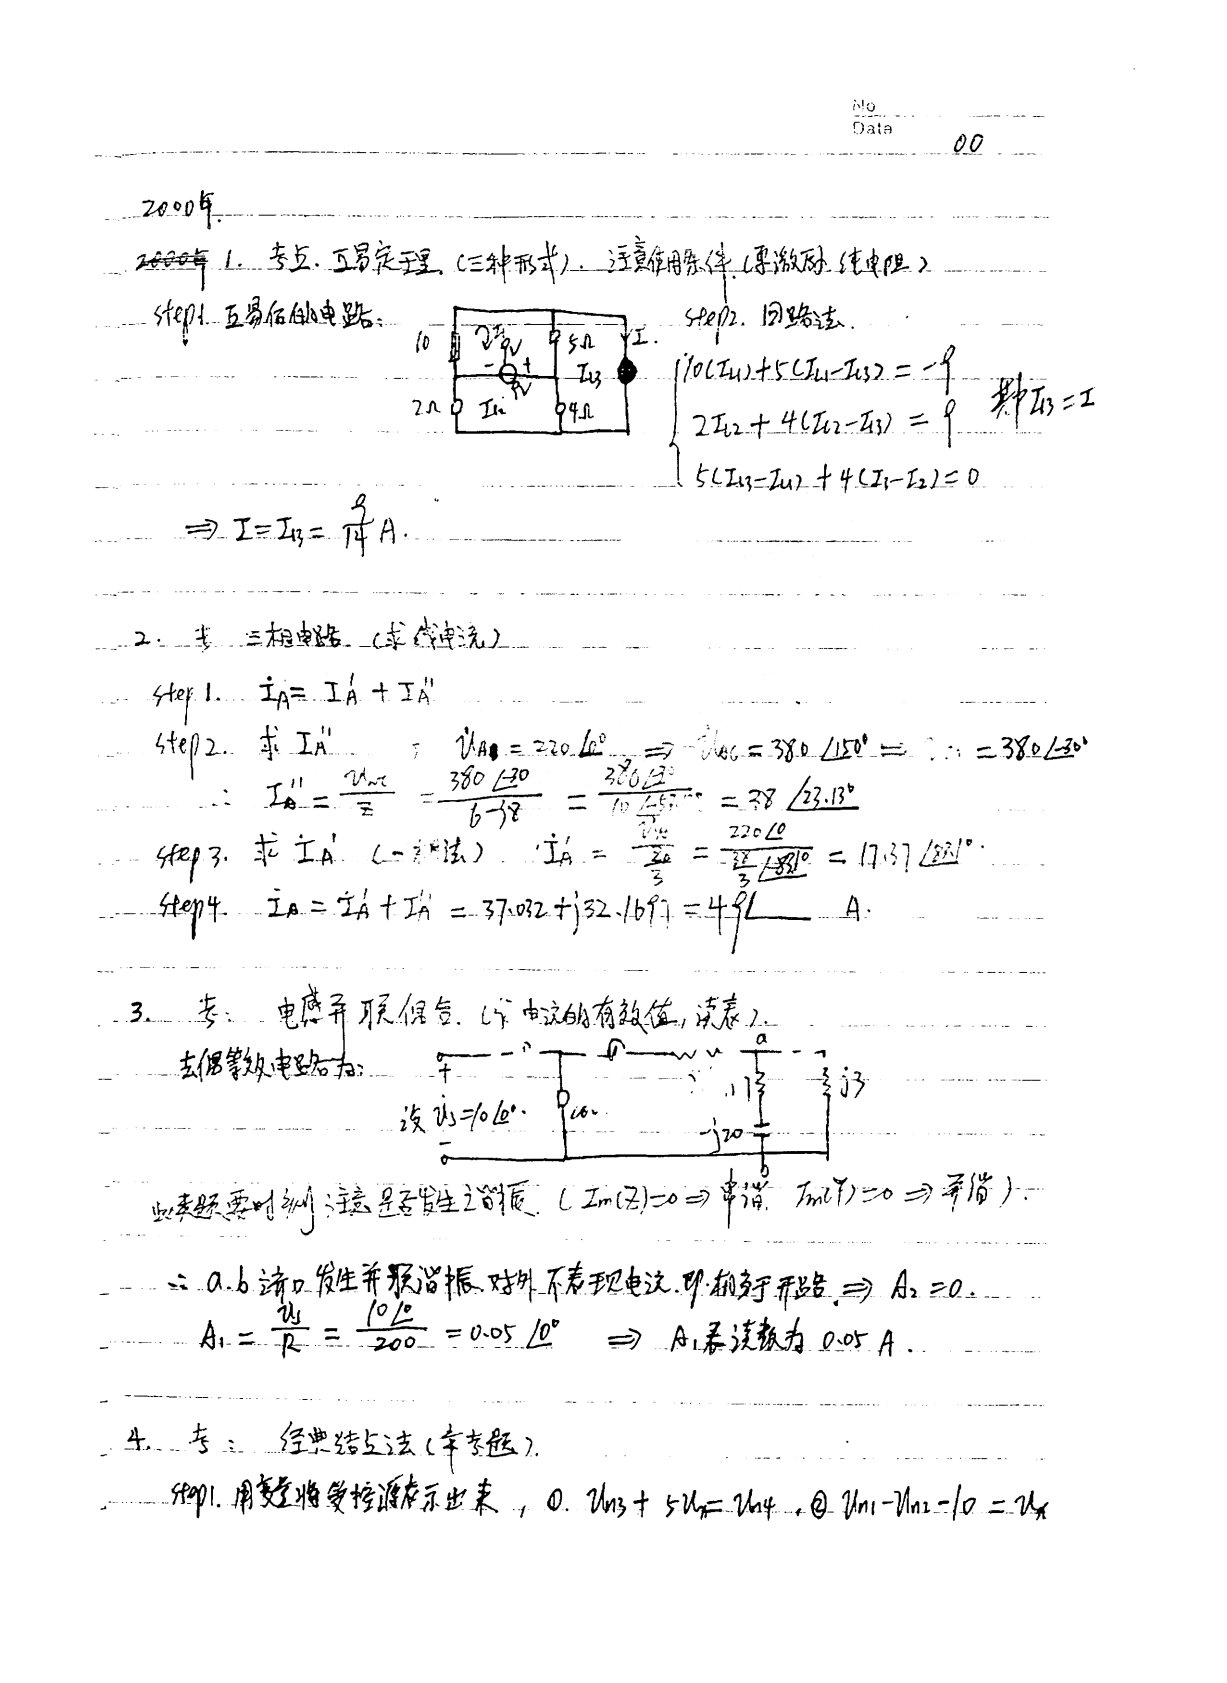 No
Data
00
2000年.
2000年 1. 考点. 互易定理 (三种形式). 注意使用条件 (单激励 纯电阻)
step1. 互易后的电路: step2. 回路法.
10 9V 5Ω I.
- + Il3
2Ω Il2 4Ω
10(Il1)+5(Il1-Il3)=-9
2Il2+4(Il2-Il3)=9 其中Il3=I
5(Il3-Il1)+4(I3-I2)=0
⇒ I=Il3= 9/14 A.
2. 考 三相电路 (求线电流)
step 1. İA= I'A + I''A
step2. 求 I''A = 220∠0° ⇒ = 380∠150° = 380∠-30°
∴ I''A = /Z = 380∠-30 / 6-j8 = = 38 ∠23.13°
step 3. 求 İ'A = = 220∠0 / = 17.37∠
step4. İA = İ'A + I''A = 37.032+j32.1697 = 49∠ A.
3. 考: 电感并联耦合. (求 电流的有效值, 读表).
去耦等效电路为: a
+ j3
设 U̇s=10∠0°. -j20
- b
此类题要时刻注意是否发生谐振. ( Im(Z)=0 ⇒ 串谐. Im(Y)=0 ⇒ 并谐 ).
∴ a.b 端口发生并联谐振. 对外不表现电流. 即相当于开路. ⇒ A2 =0.
A1 = U̇s/R = 10∠0 / 200 = 0.05∠0° ⇒ A1表读数为 0.05 A.
4. 考: 经典结点法 (年考题).
step1. 用变量将受控源表示出来, ①. Un3 + 5Ux= Un4 . ② Un1-Un2-10 = Ux